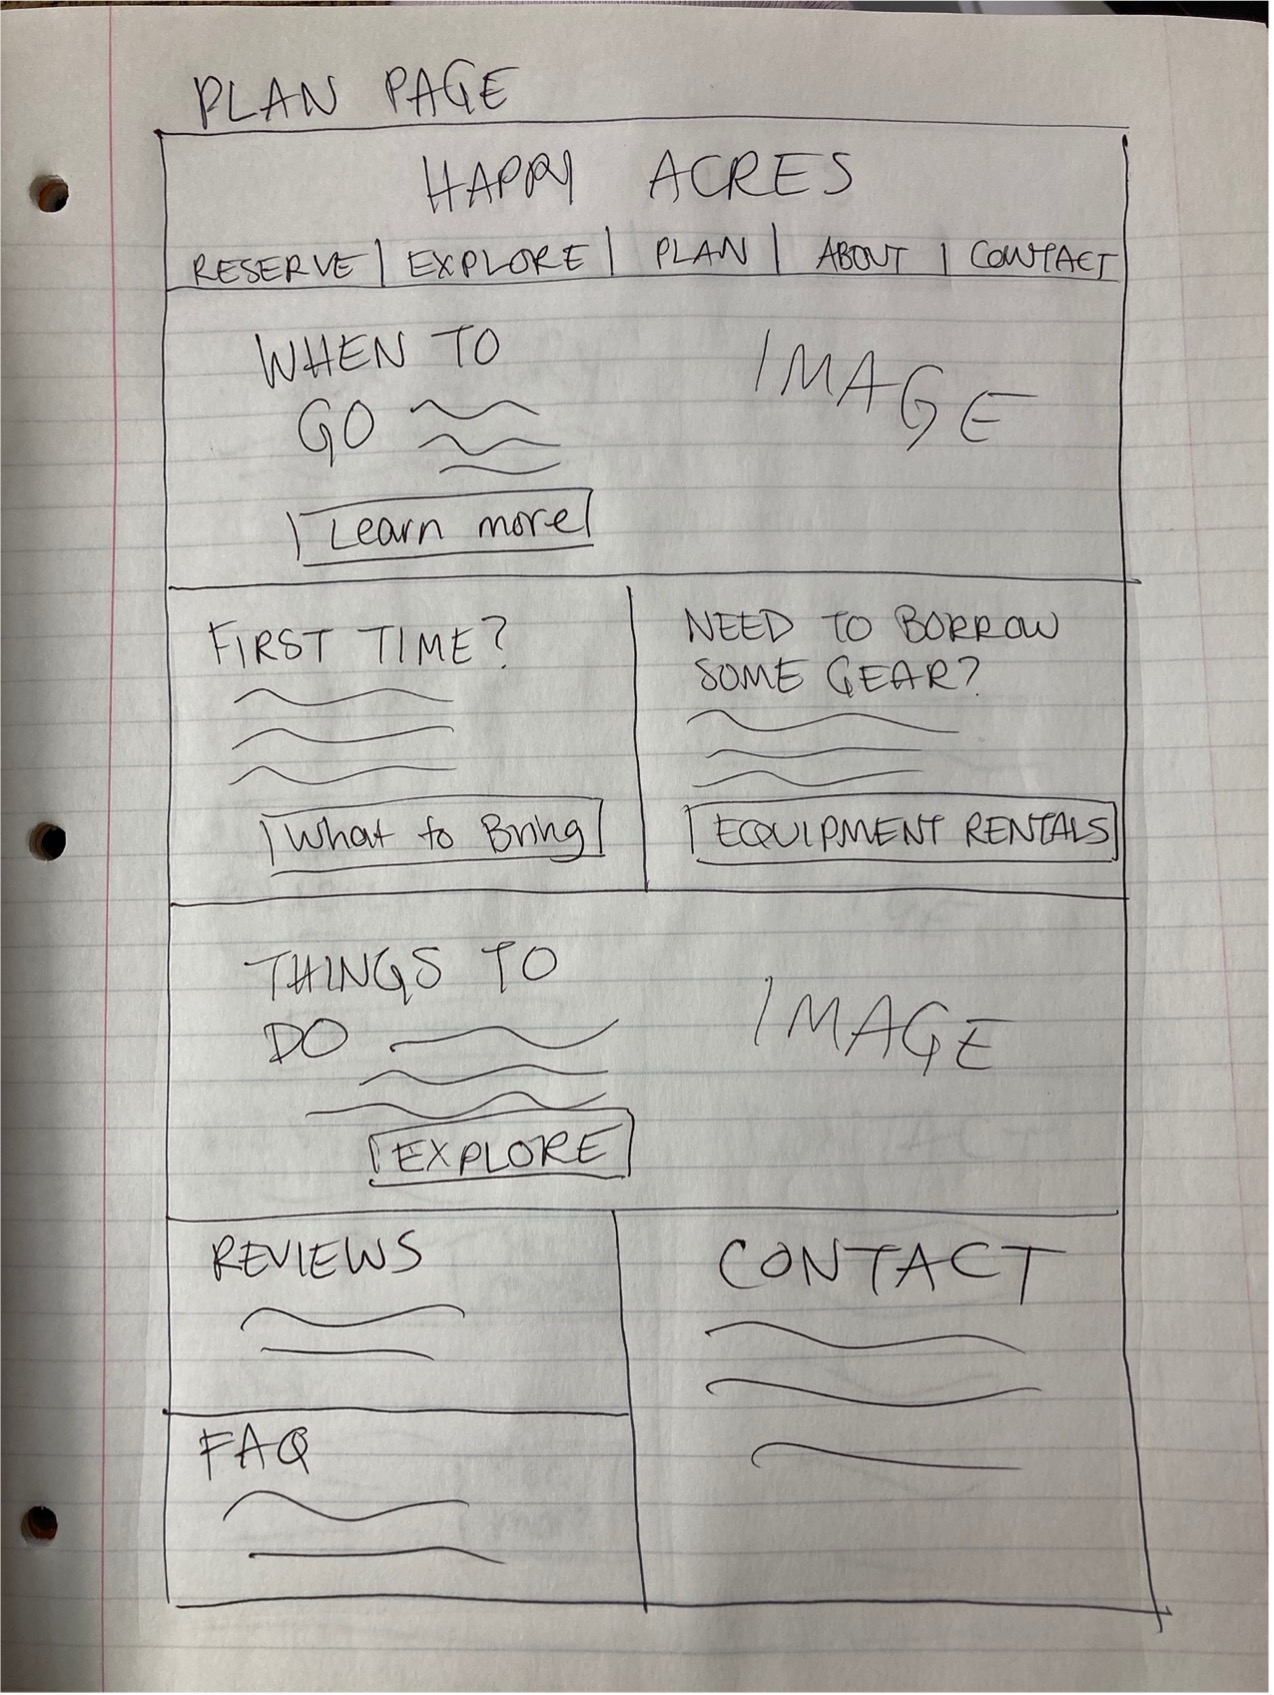 PLAN PAGE
HAPPY ACRES
RESERVE | EXPLORE | PLAN | ABOUT | CONTACT
WHEN TO
GO
IMAGE
Learn more
FIRST TIME?
What to Bring
NEED TO BORROW
SOME GEAR?
EQUIPMENT RENTALS
THINGS TO
DO
IMAGE
EXPLORE
REVIEWS
FAQ
CONTACT